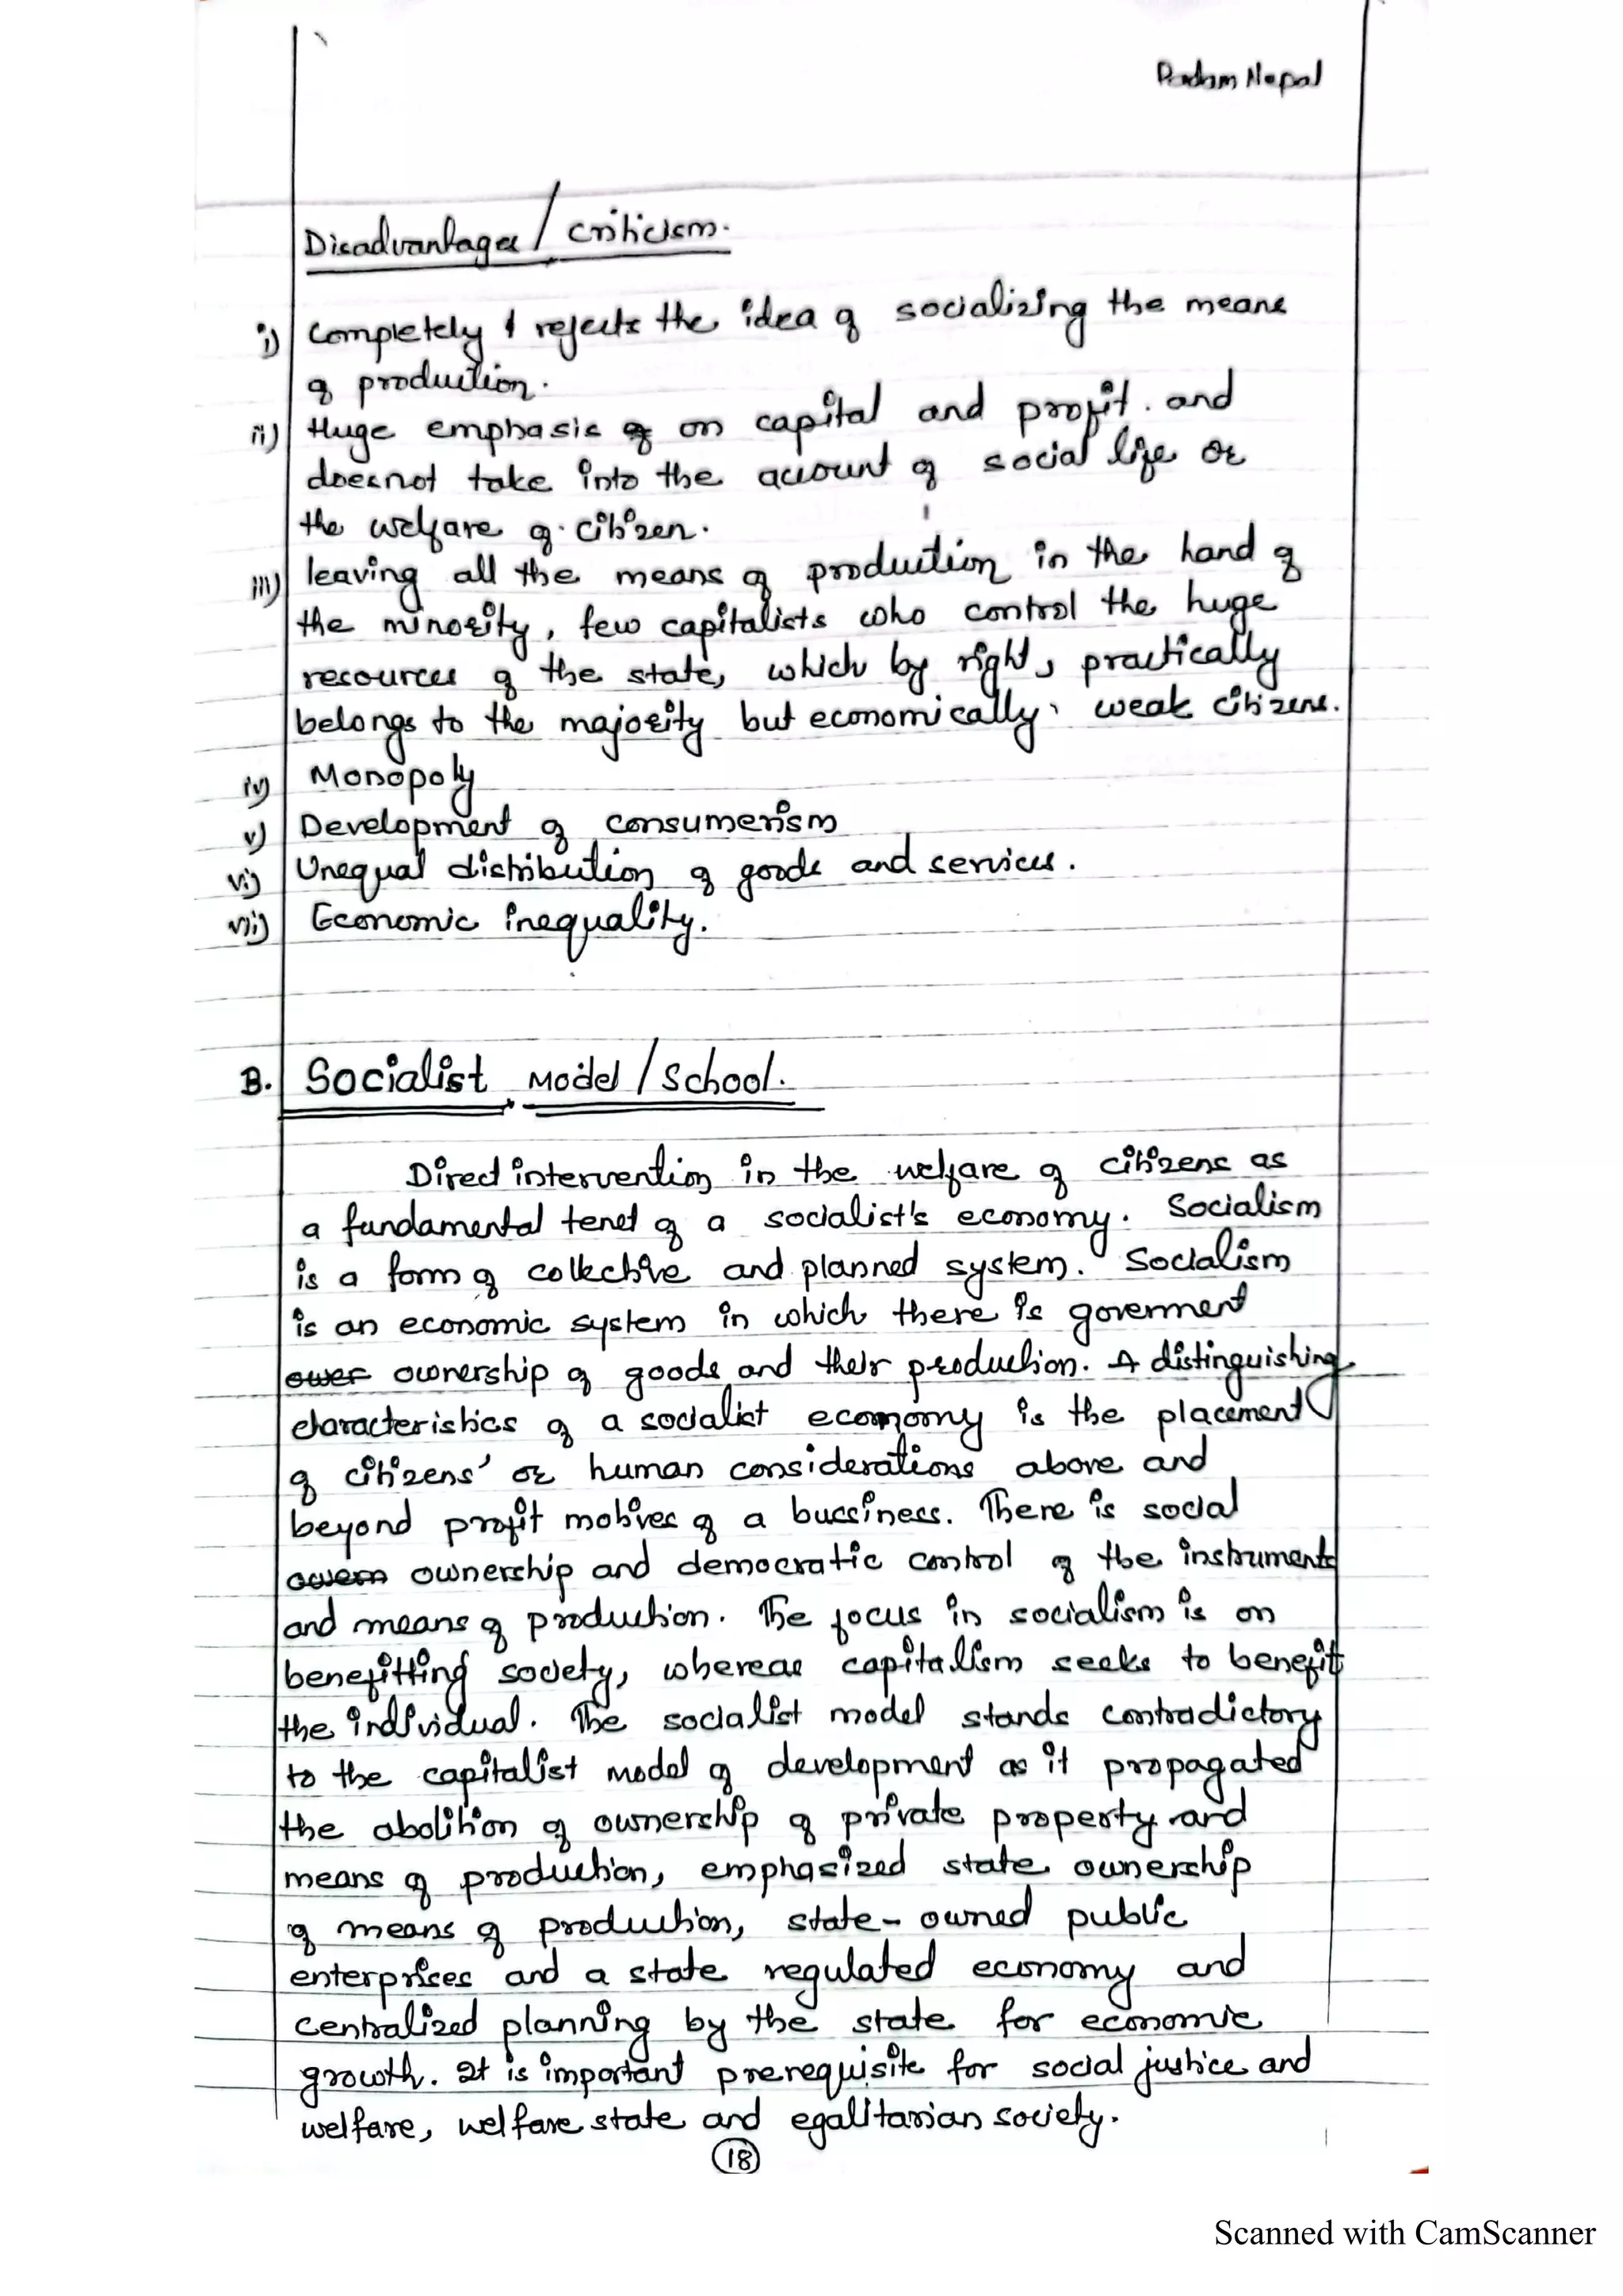 Padam Nepal
Disadvantages / criticism.
i) completely & rejects the idea of socializing the means
of production.
ii) Huge emphasis of on capital and profit. and
doesnot take into the account of social life or
the welfare of citizen.
iii) leaving all the means of production in the hand of
the minority, few capitalists who control the huge
resources of the state, which by right, practically
belongs to the majority but economically weak citizens.
iv) Monopoly
v) Development of consumerism
vi) Unequal distribution of goods and services.
vii) Economic inequality.
B. Socialist Model / School.
Direct intervention in the welfare of citizens as
a fundamental tenet of a socialist's economy. Socialism
is a form of collective and planned system. Socialism
is an economic system in which there is goverment
ower ownership of goods and their production. A distinguishing
characteristics of a socialist economy is the placement
of citizens' or human considerations above and
beyond profit motives of a bussiness. There is social
owern ownership and democratic control of the instruments
and means of production. The focus in socialism is on
benefitting society, whereas capitalism seeks to benefit
the individual. The socialist model stands contradictory
to the capitalist model of development as it propagated
the abolition of ownership of private property and
means of production, emphasized state ownership
of means of production, state-owned public
enterprises and a state regulated economy and
centralized planning by the state for economic
growth. It is important prerequisite for social justice and
welfare, welfare state and egalitarian society.
18
Scanned with CamScanner